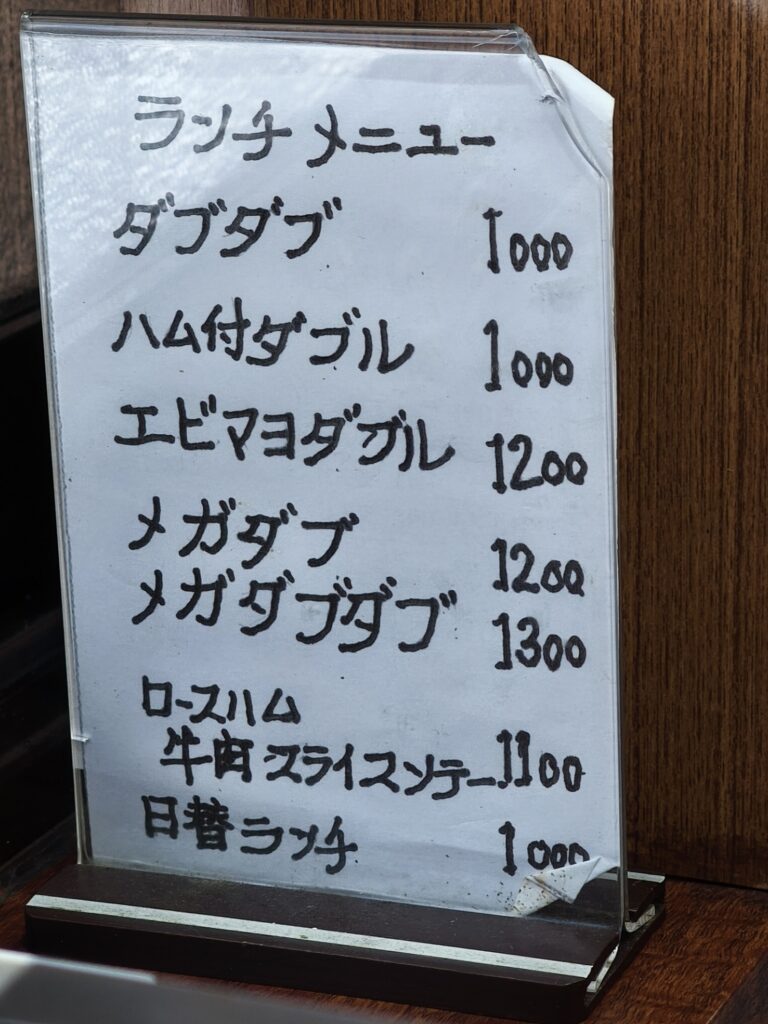 ランチメニュー
ダブダブ 1000
ハム付ダブル 1000
エビマヨダブル 1200
メガダブ 1200
メガダブダブ 1300
ロースハム
牛肉スライスソテー 1100
日替ランチ 1000